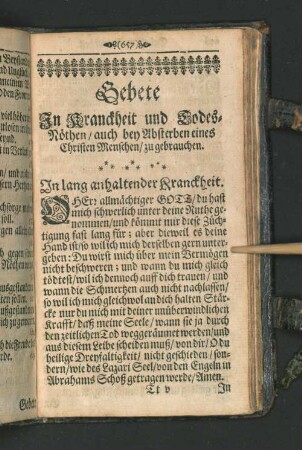 (657)
Gebete
In Kranckheit und Todes-
Nöthen/ auch bey Absterben eines
Christen Menschen/ zu gebrauchen.
In lang anhaltender Kranckheit.
HErr allmächtiger GOTT/ du hast
mich schwerlich unter deine Ruthe ge-
nommen/ und kömmt mir diese Züch-
tigung fast lang für; aber dieweil es deine
Hand ist/ so wil ich mich derselben gern unter-
geben: Du wirst mich über mein Vermögen
nicht beschweren; und wann du mich gleich
tödtest/ wil ich dennoch auff dich trauen/ und
wann die Schmertzen auch nicht nachlassen/
so wil ich mich gleichwol an dich halten Stär-
cke nur du mich mit deiner unüberwindlichen
Krafft/ daß meine Seele/ wann sie ja durch
den zeitlichen Tod weggeräumet werden/ und
aus diesem Leibe scheiden muß/ von dir/ O du
heilige Dreyfaltigkeit/ nicht geschieden/ son-
dern/ wie des Lazari Seel/ von den Engeln in
Abrahams Schoß getragen werde/ Amen.
Tt v In